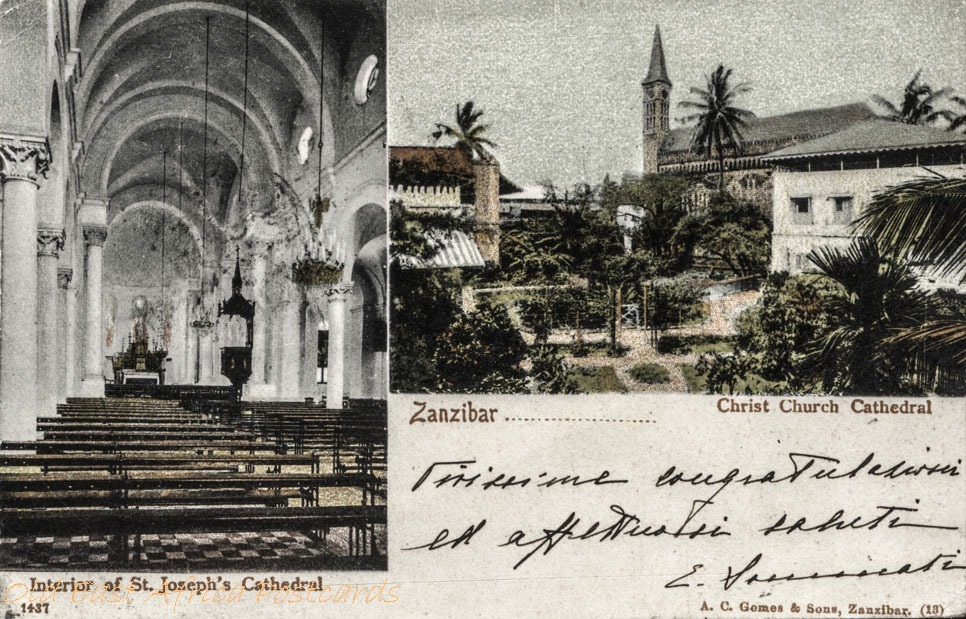 Zanzibar
Christ Church Cathedral
Vivissime congratulazioni
ed affettuosi saluti
E.
Interior of St. Joseph's Cathedral
Old East Africa Postcards
1437
A. C. Gomes & Sons, Zanzibar. (13)